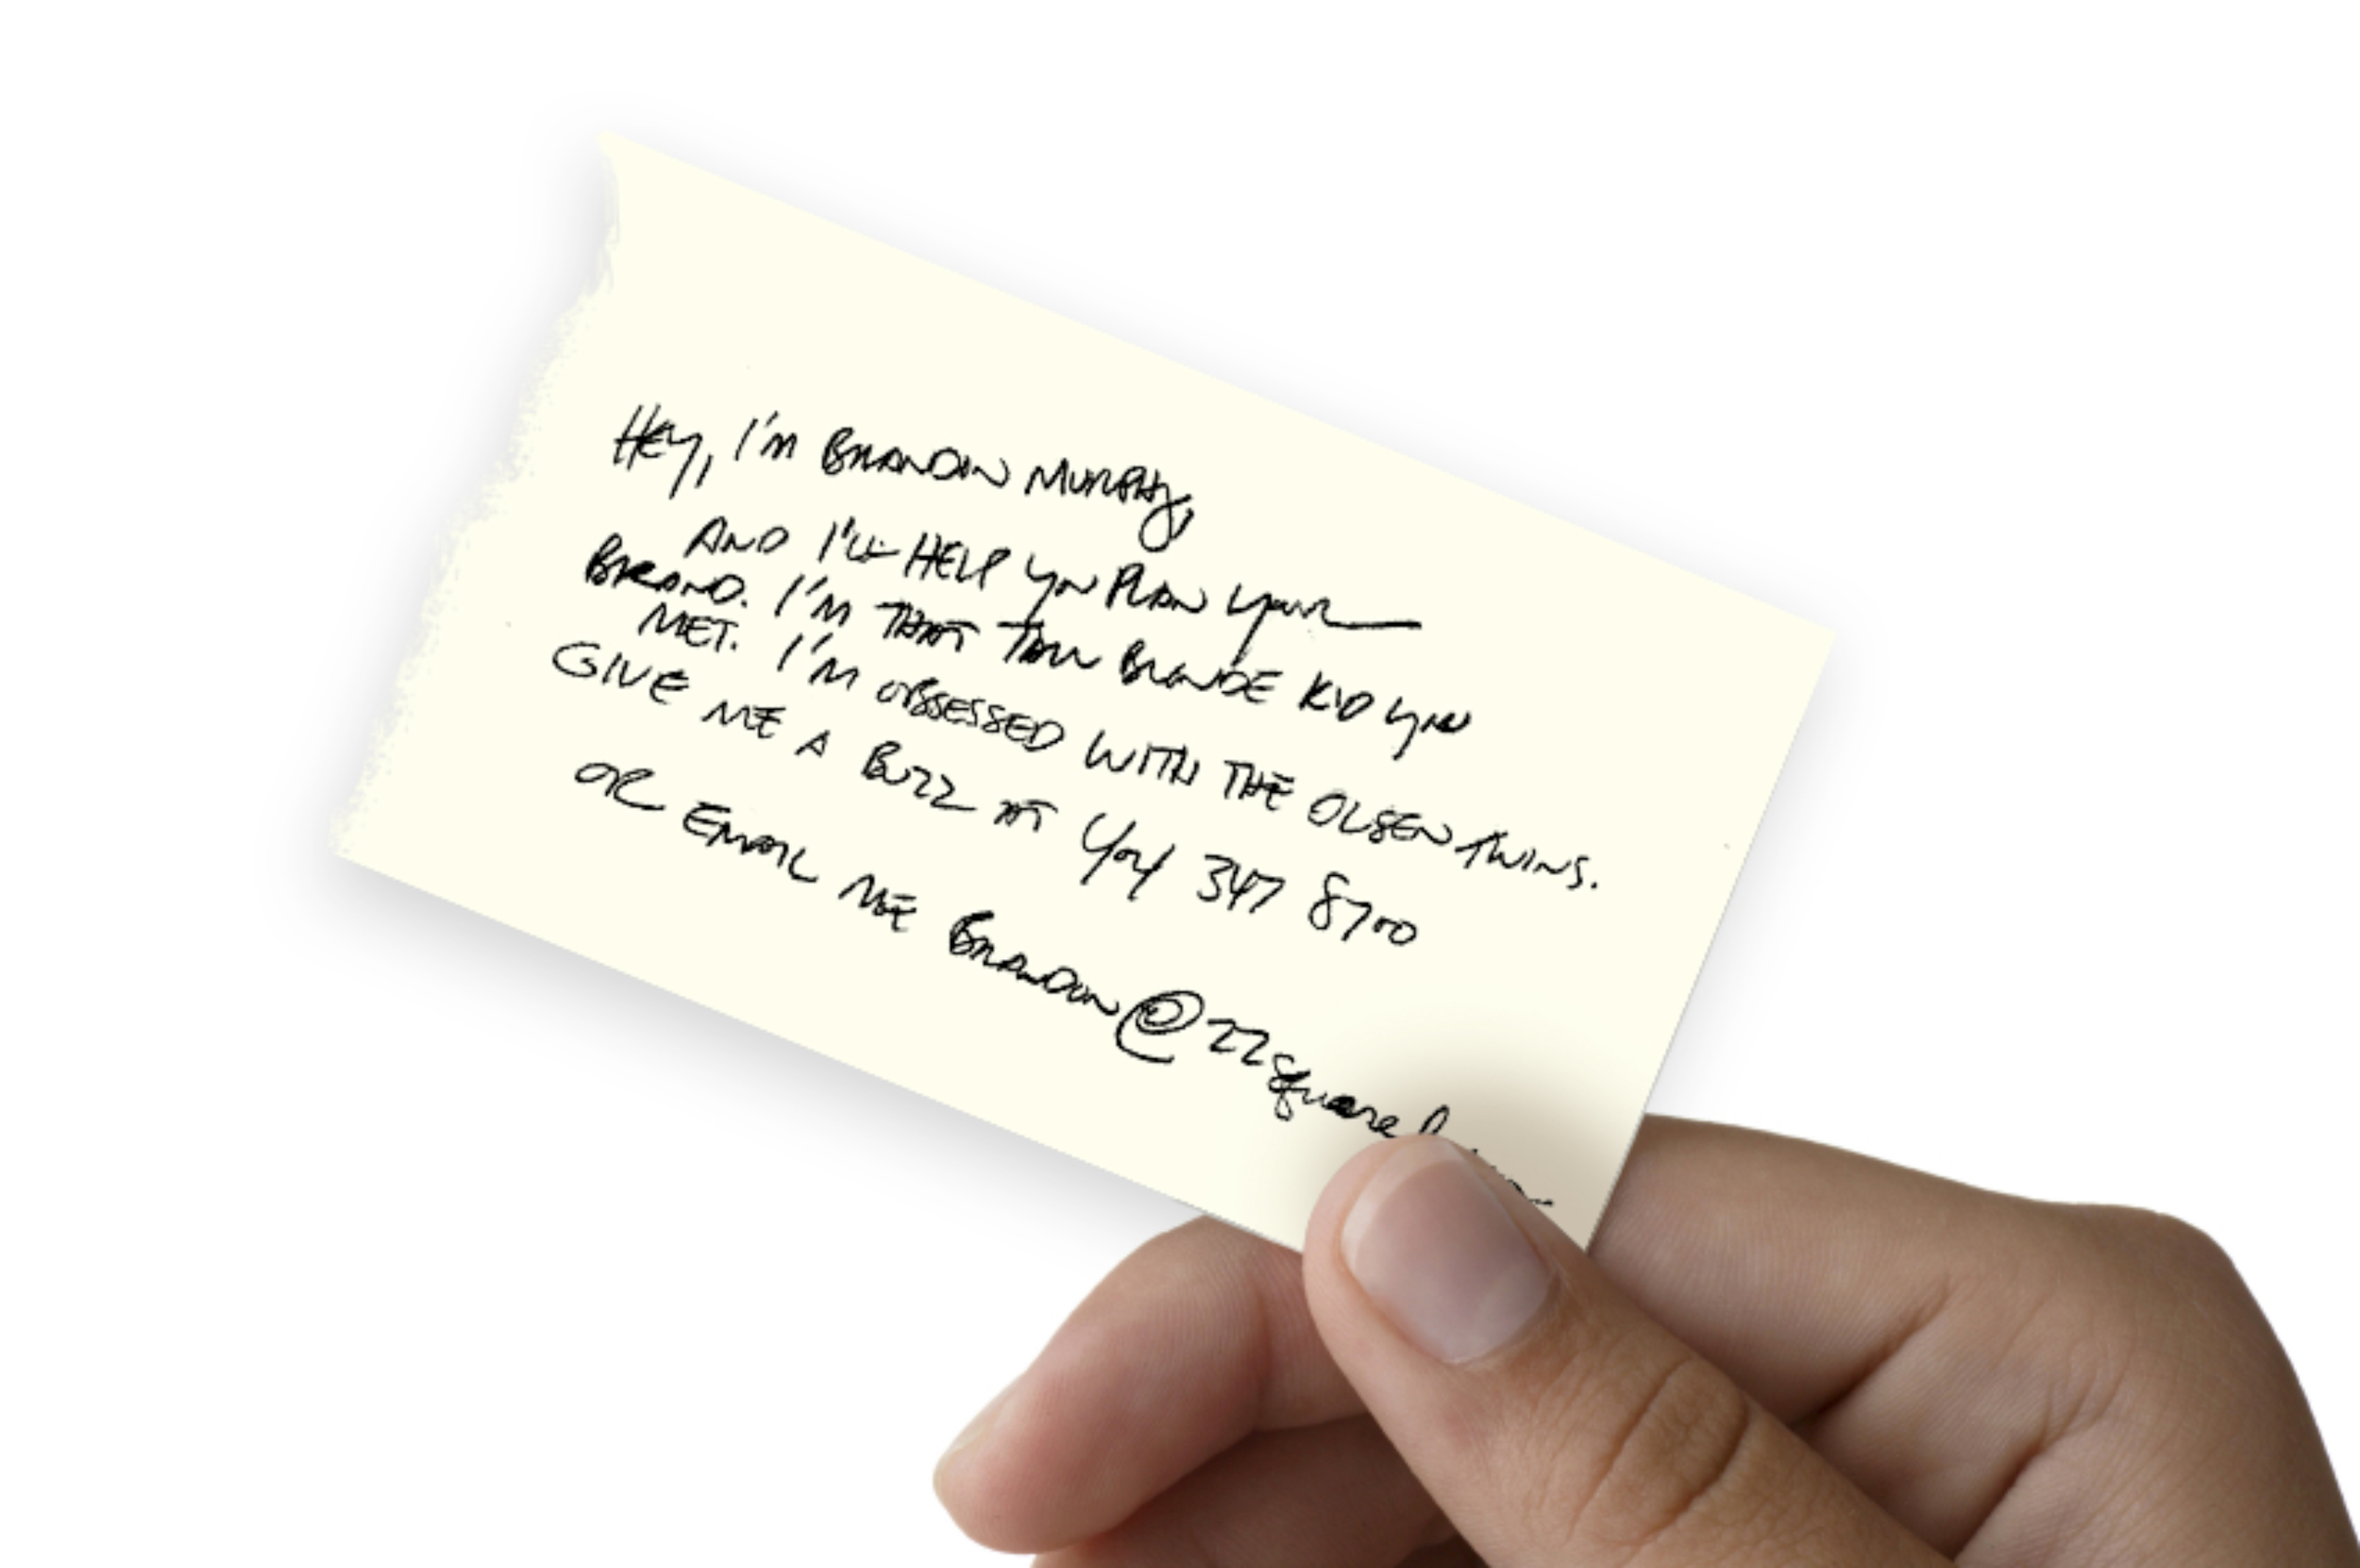 HEY, I'M BRANDON MURPHY,
AND I'LL HELP YOU PLAN YOUR
BRAND. I'M THAT TALL BLONDE KID YOU
MET. I'M OBSESSED WITH THE OLSEN TWINS.
GIVE ME A BUZZ AT 404 347 8700
OR EMAIL ME BRANDON@22square